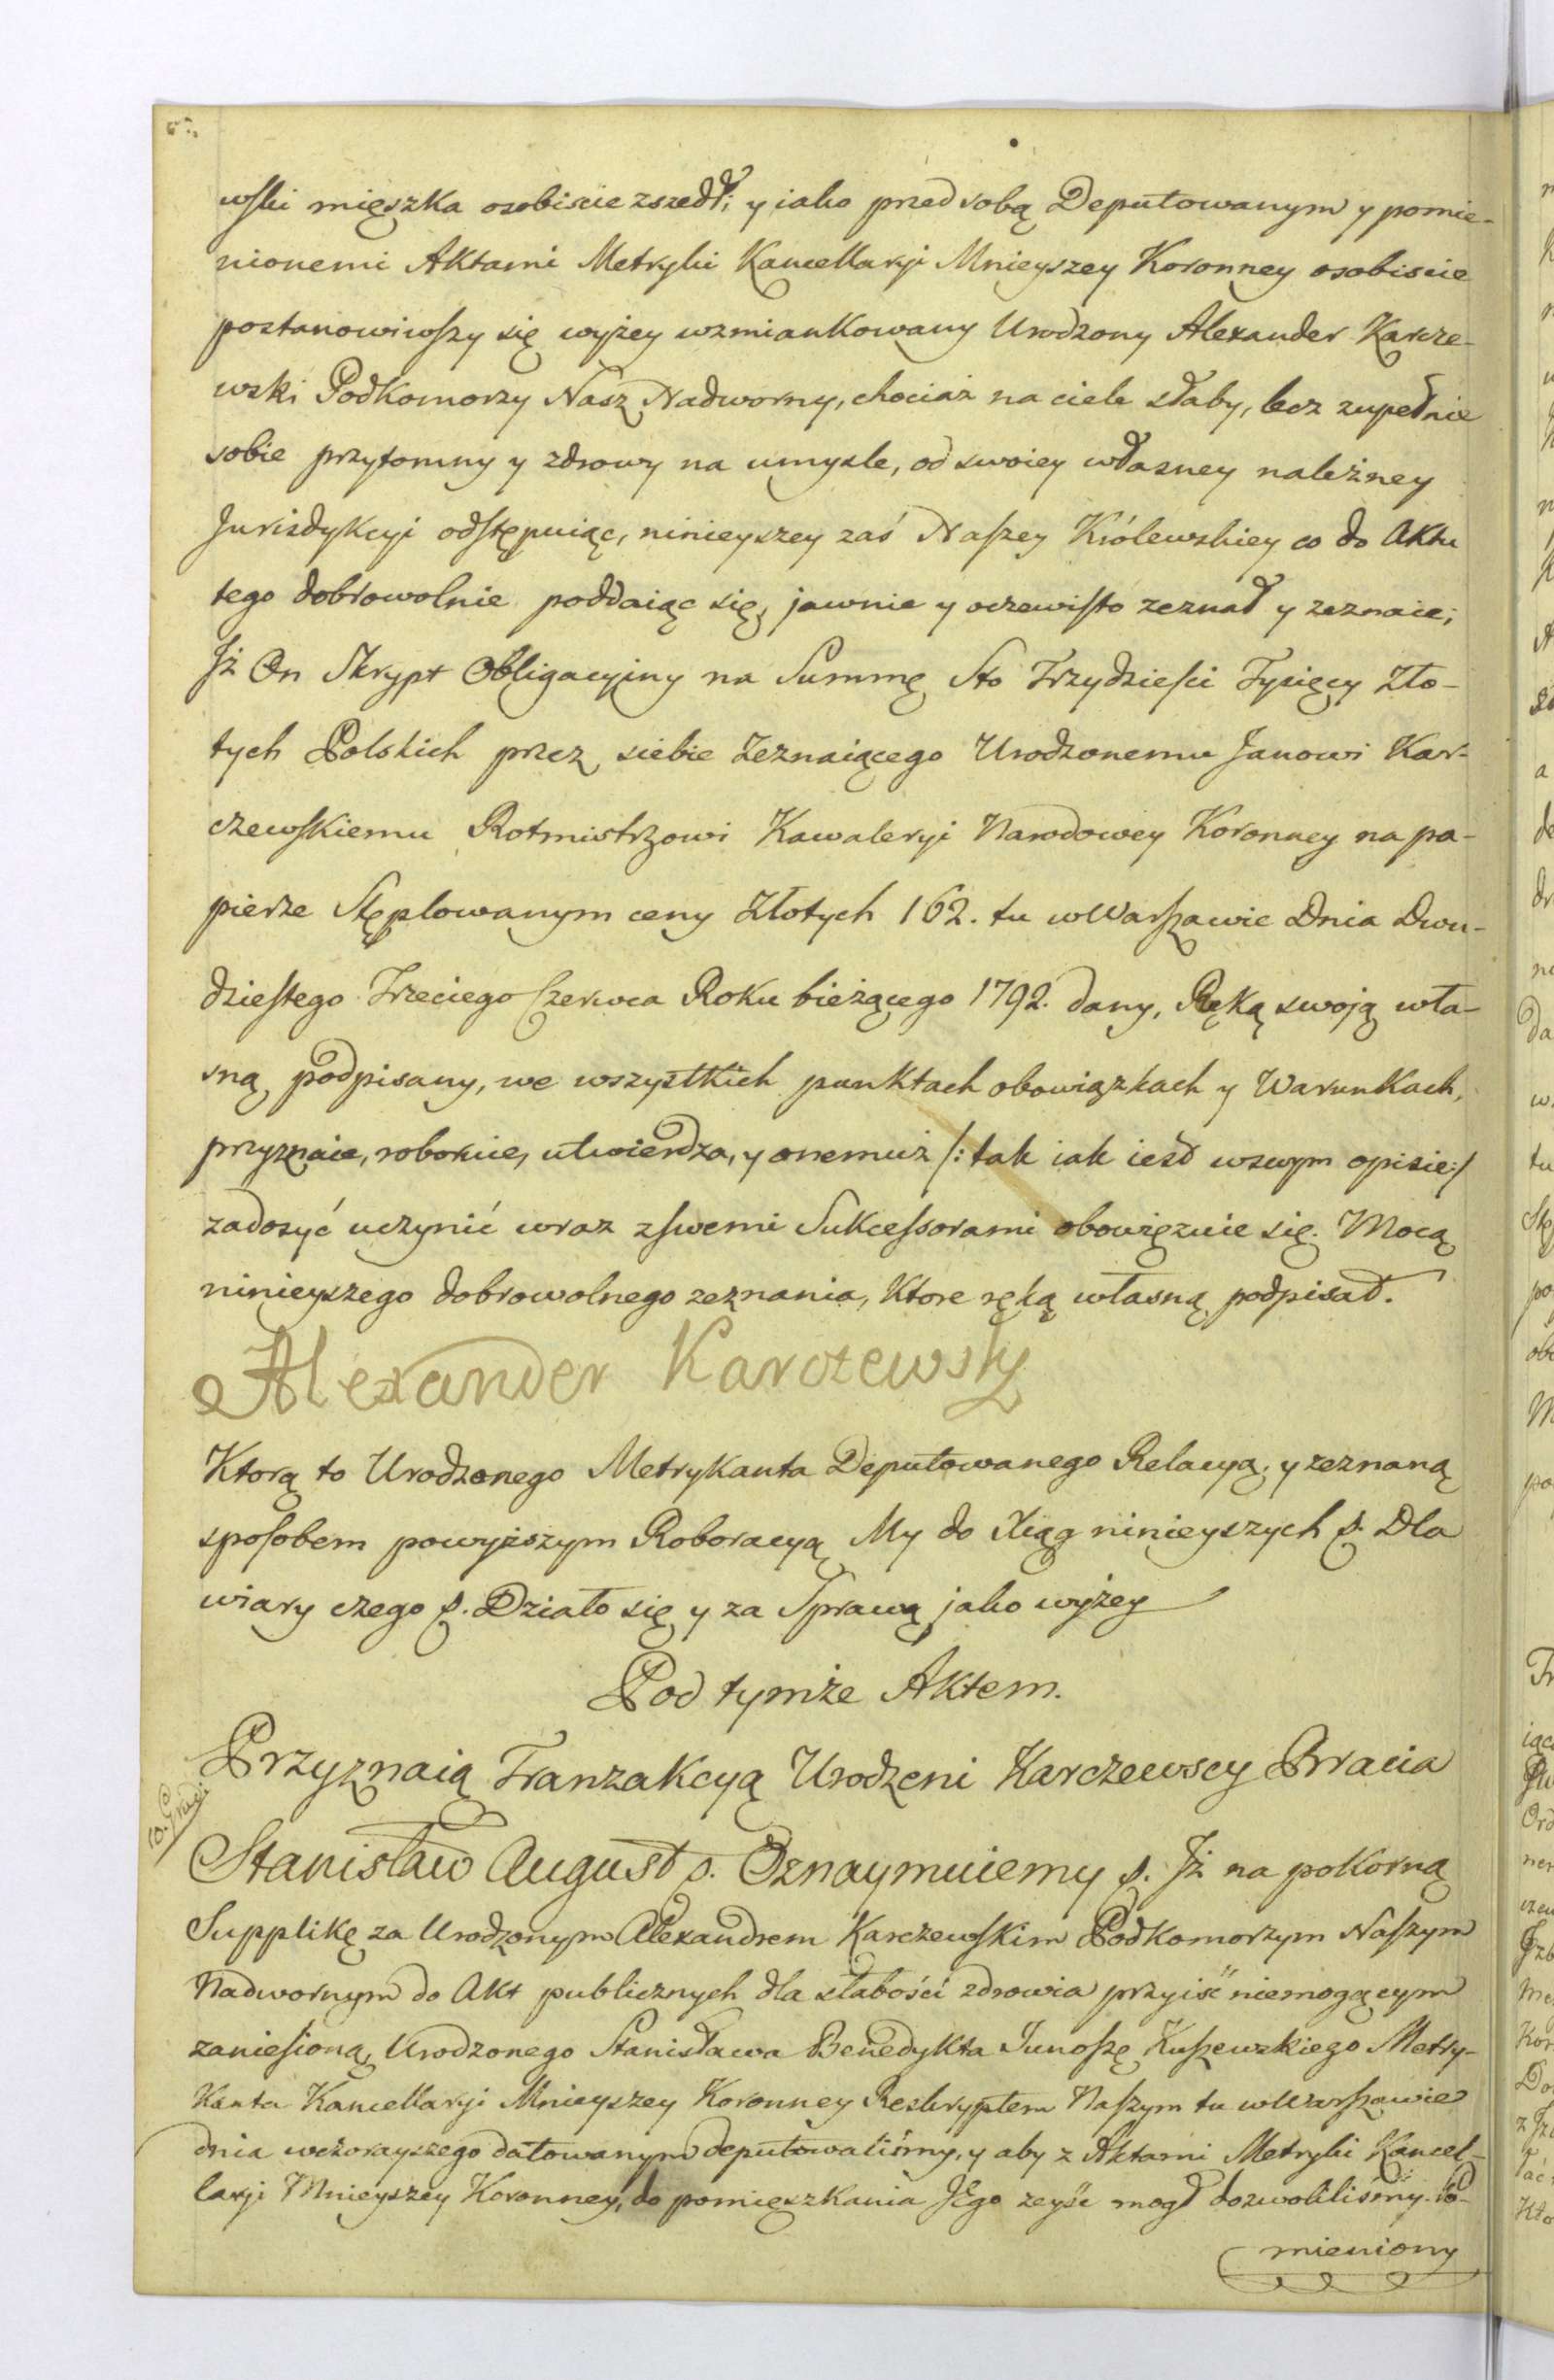 wski mięszka osobiscie zszedł; y iako przed sobą Deputowanym y pomie-
nionemi Aktami Metryki Kancellaryi Mnieyszey Koronney osobiscie
postanowiwszy się wyżey wzmiankowany Urodzony Alexander Karcze-
wski Podkomorzy Nasz Nadworny, chociaż na ciele słaby, lecz zupełnie
sobie przytomny y zdrowy na umysle, od swoiey własney należney
Jurisdykcyi odstępuiąc, ninieyszey zaś Naszey Królewskiey co do Aktu
tego dobrowolnie poddaiąc się, jawnie y oczewisto zeznał y zeznaie;
Jż On Skrypt Obligacyiny na Summę Sto Trzydziesci Tysięcy Zło-
tych Polskich przez siebie Zeznaiącego Urodzonemu Janowi Kar-
czewskiemu Rotmistrzowi Kawaleryi Narodowey Koronney na pa-
pierze Stęplowanym ceny Złotych 162. tu w Warszawie Dnia Dwu-
dziestego Trzeciego Czerwca Roku bieżącego 1792. dany, Ręką swoją wła-
sną podpisany, we wszystkich punktach obowiązkach y Warunkach,
przyznaie, roboruie, utwierdza, y onemuż /: tak iak iest w swym opisie :/
zadosyć uczynić wraz z swemi Sukcessorami obowięzuie się. Mocą
ninieyszego dobrowolnego zeznania, Ktore ręką własną podpisał.
Alexander Karczewsky
Ktorą to Urodzonego Metrykanta Deputowanego Relacyą, y zeznaną
sposobem powyższym Roboracyą My do Xiąg ninieyszych p. Dla
wiary czego p. Działo się y za Sprawą jako wyżey
Pod tymże Aktem.
Przyznaią Tranzakcyą Urodzeni Karczewscy Bracia
Stanisław August p. Oznaymuiemy p. Jż na pokorną
Supplikę za Urodzonym Alexandrem Karczewskim Podkomorzym Naszym
Nadwornym do Akt publicznych dla słabości zdrowia przyiść niemogącym
zaniesioną, Urodzonego Stanisława Benedykta Junoszę Kuszewskiego Metry-
kanta Kancellaryi Mnieyszey Koronney Reskryptem Naszym tu w Warszawie
dnia wczorayszego datowanym deputowaliśmy, y aby z Aktami Metryki Kancel-
laryi Mnieyszey Koronney, do pomięszkania JEgo zeyść mogł dozwoliliśmy. Po-
mieniony